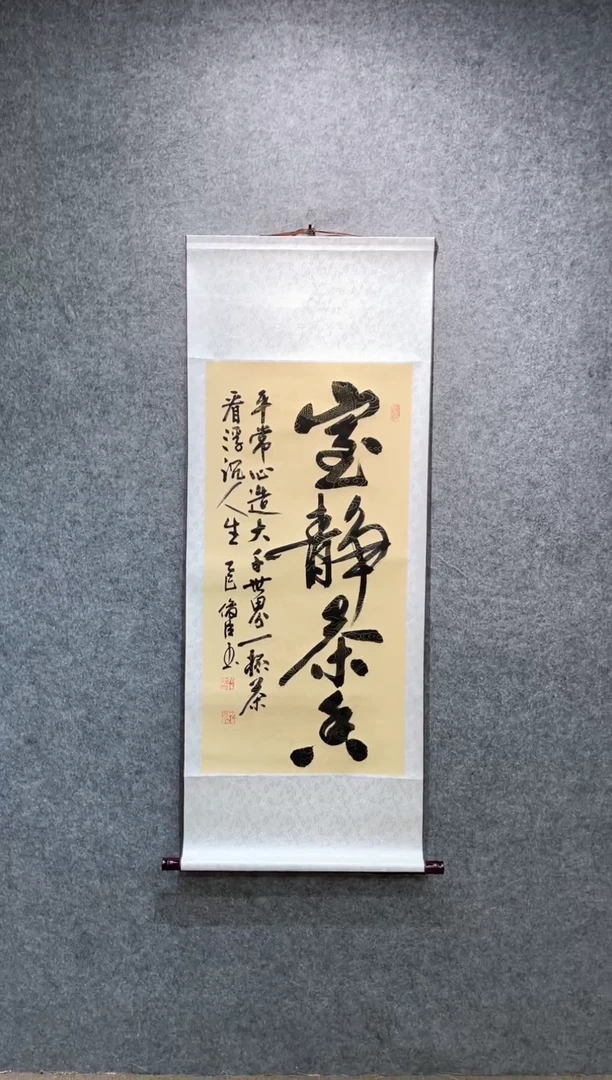 室静茶香
平常心造大千世界一杯茶
看浮沉人生 乙巳